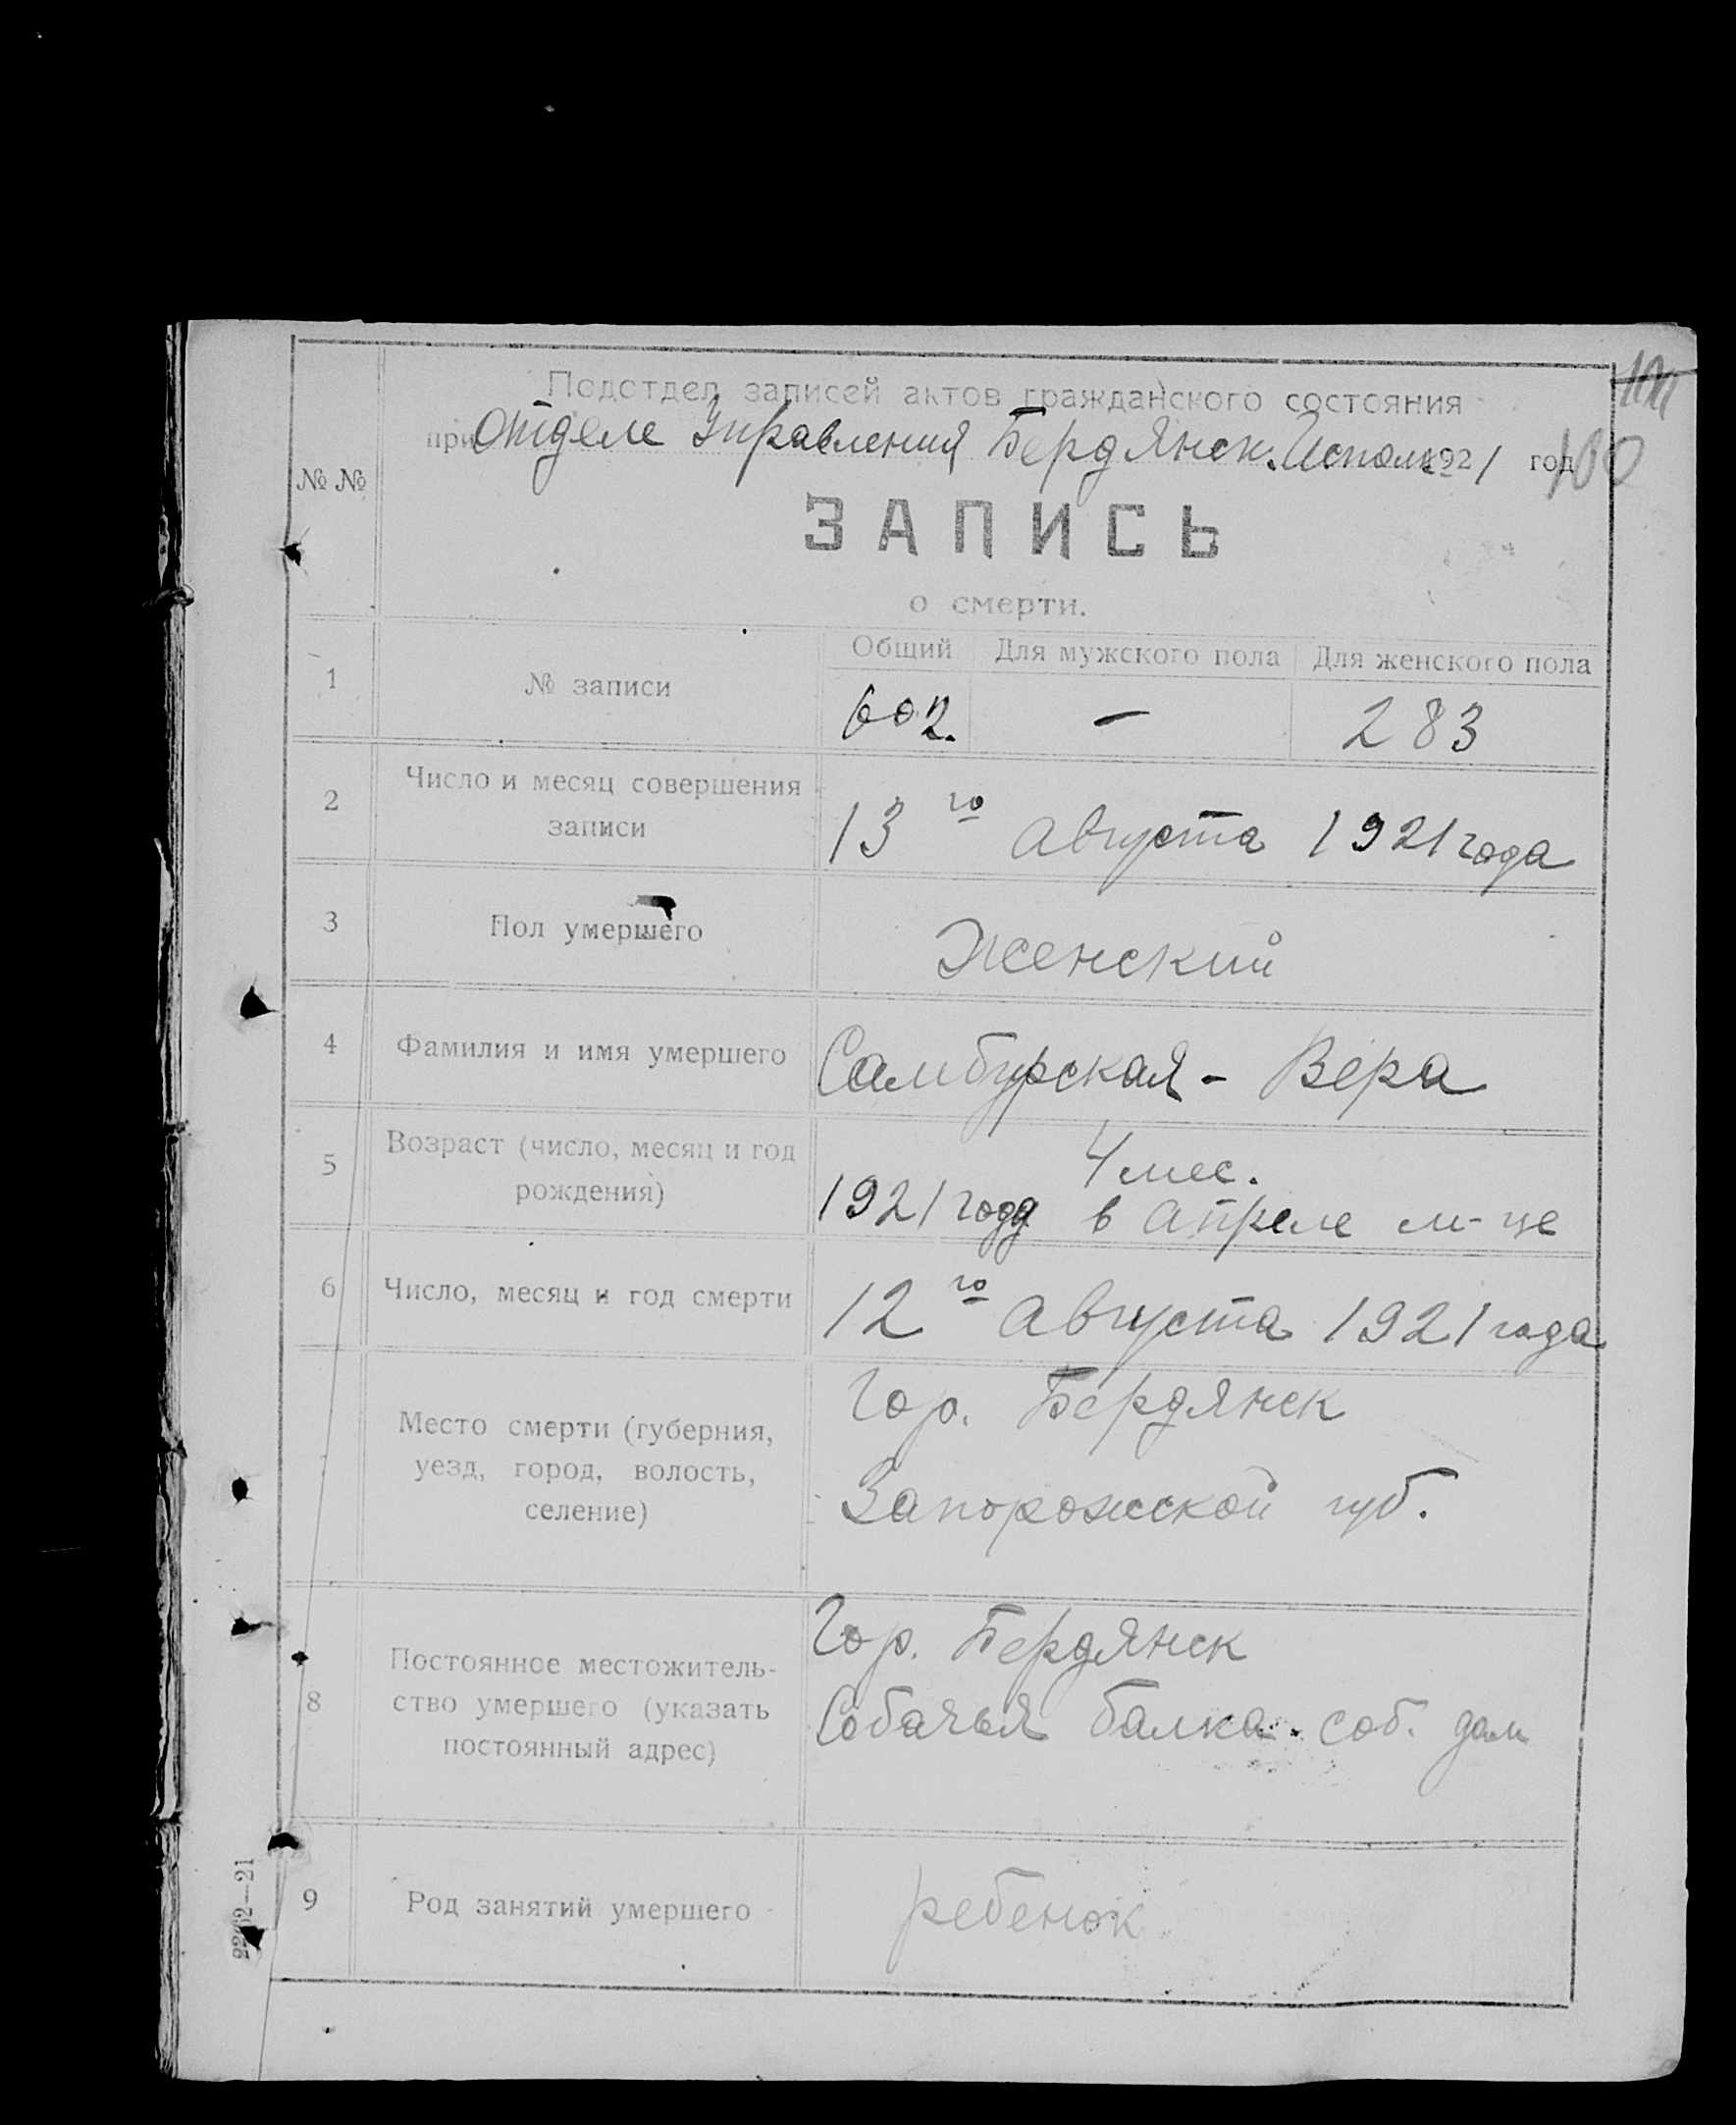 Подотдел записей актов гражданского состояния
при Отделе Управления Бердянск. Исполк 1921 год
100
№ №
ЗАПИСЬ
о смерти.
Общий Для мужского пола Для женского пола
1 № записи 602. — 283
2 Число и месяц совершения
записи
13го Августа 1921 года
3 Пол умершего Женский
4 Фамилия и имя умершего Самбурская - Вера
5 Возраст (число, месяц и год
рождения)
4 мес.
1921 года в Апреле м-це
6 Число, месяц и год смерти 12го Августа 1921 года
Место смерти (губерния,
уезд, город, волость,
селение)
Гор. Бердянск
Запорожской губ.
8 Постоянное местожитель-
ство умершего (указать
постоянный адрес)
Гор. Бердянск
Собачья балка. соб. дом
9 Род занятий умершего ребенок
2262—21